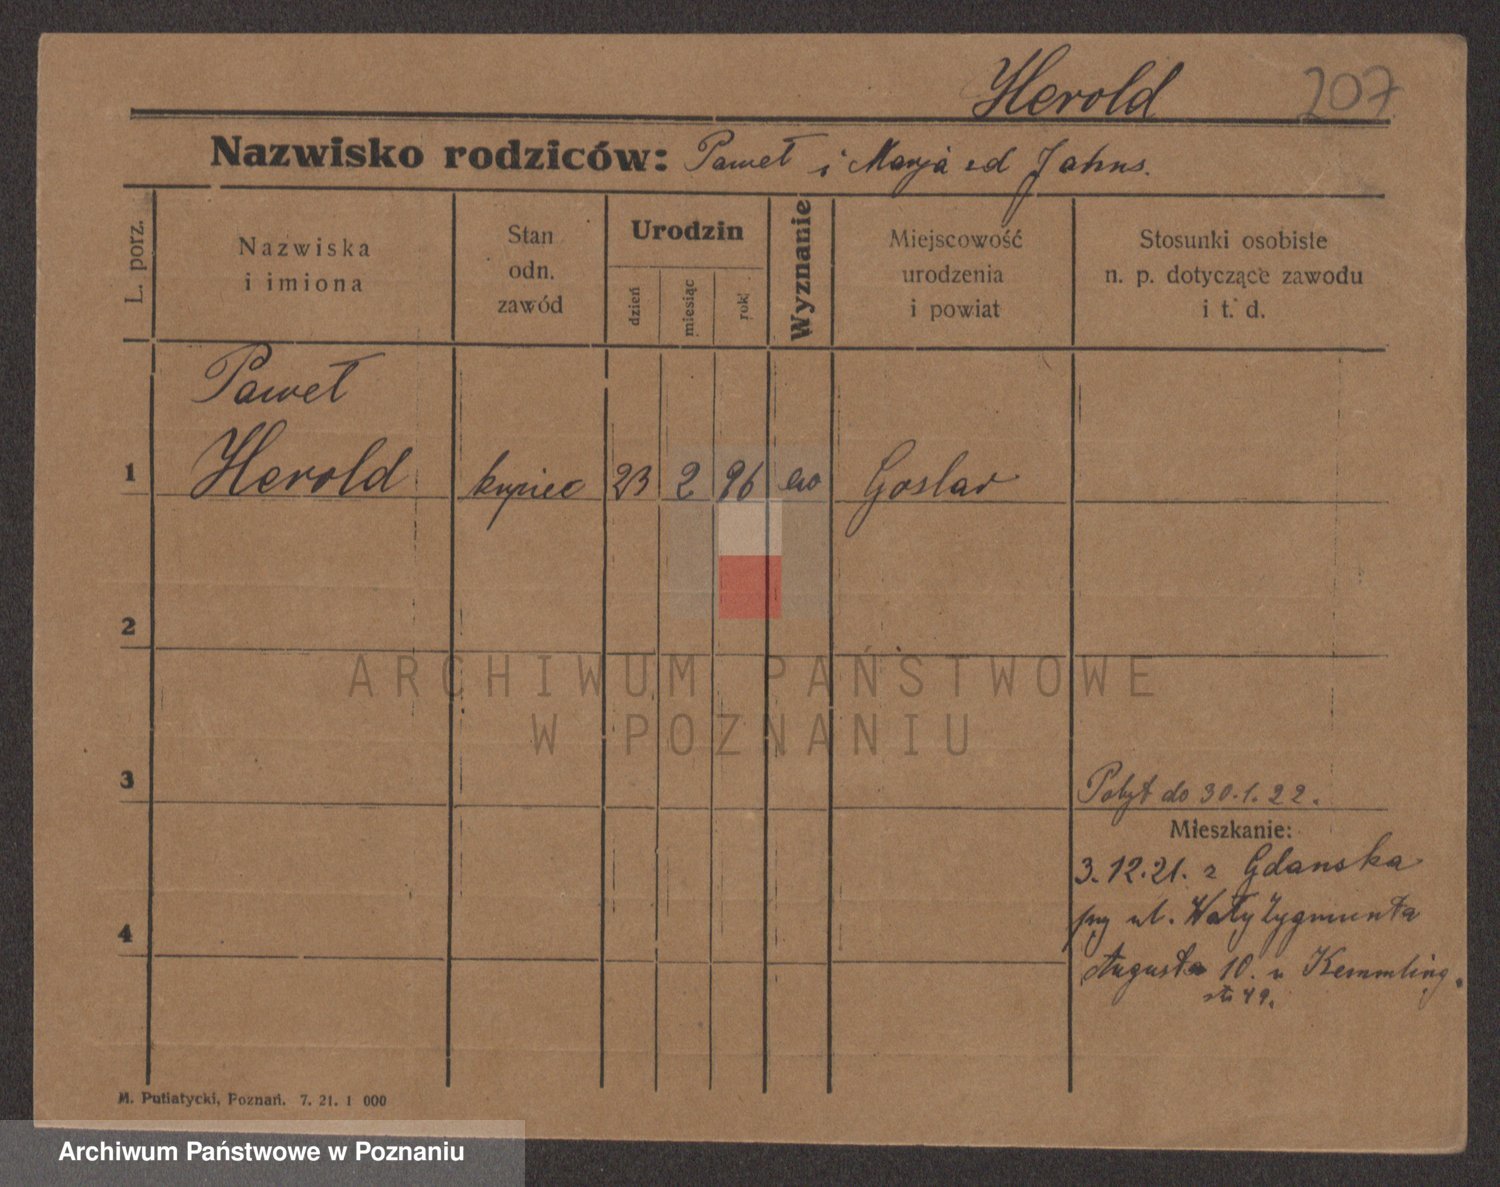 Herold 207
Nazwisko rodziców: Paweł i Marja Jahns.
L. porz.
Nazwiska
i imiona
Stan
odn.
zawód
Urodzin
dzień
miesiąc
rok
Wyznanie
Miejscowość
urodzenia
i powiat
Stosunki osobiste
n. p. dotyczące zawodu
i t. d.
Paweł
1 Herold kupiec 23 2 96 ew Goslar
2
ARCHIWUM PAŃSTWOWE
W POZNANIU
3
Pobyt do 30.1.22.
Mieszkanie:
3.12.21. z Gdanska
4
przy ul. Wały Zygmunta
Augusta 10. u Kemmling.
M. Putiatycki, Poznań. 7. 21. 1 000
Archiwum Państwowe w Poznaniu